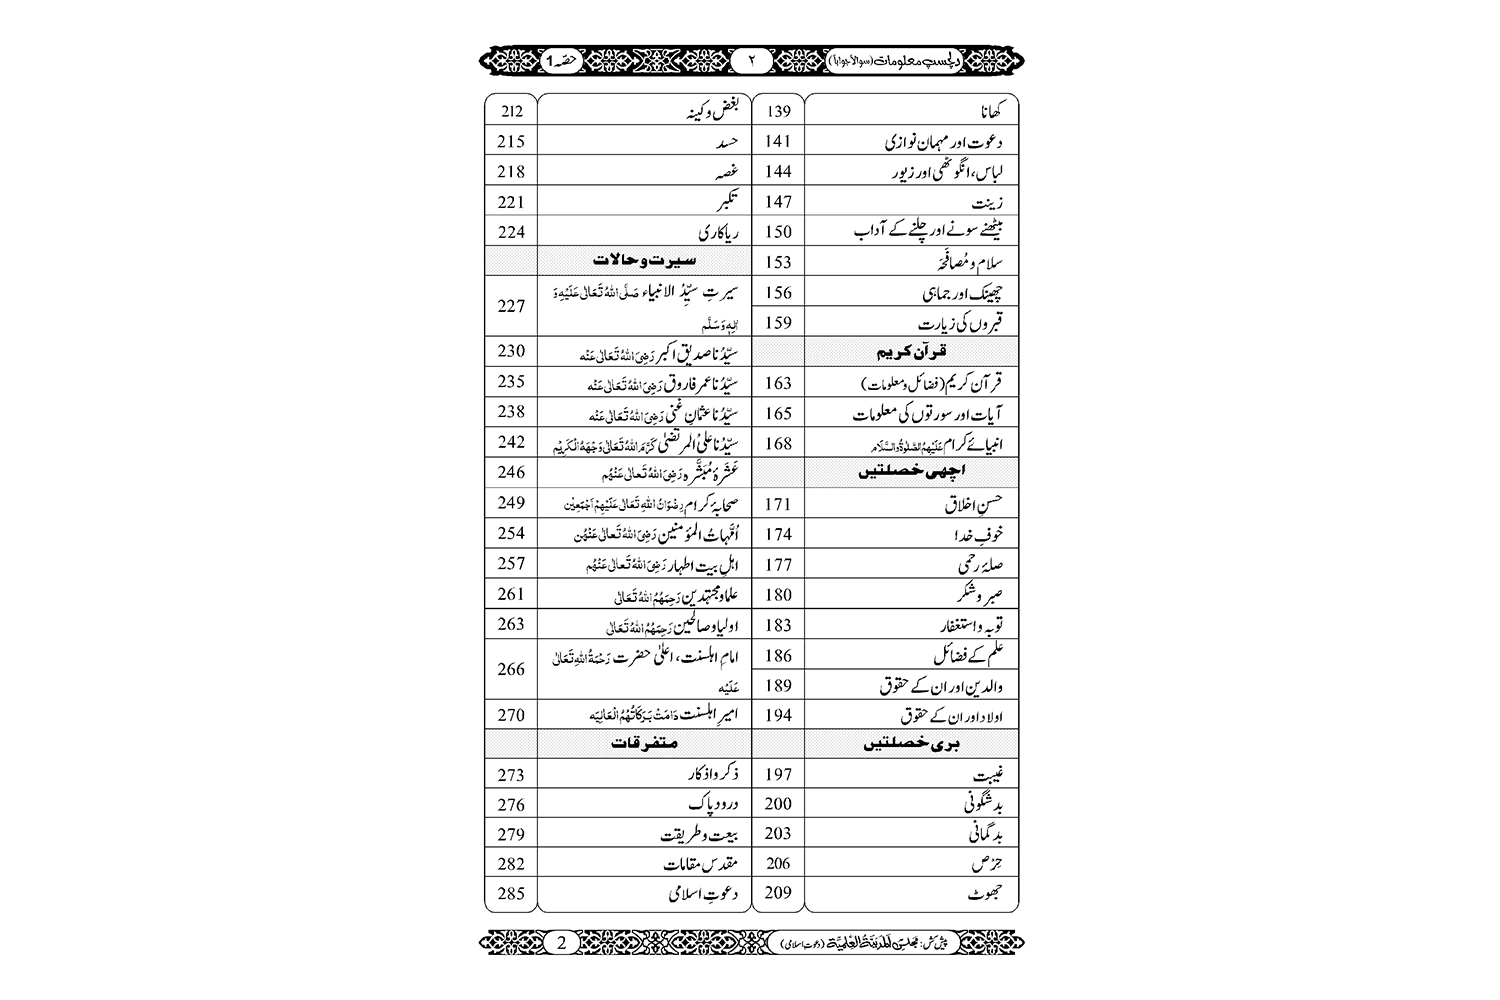 دلچسپ معلومات (سوالاً جواباً)
۲
حصّہ 1
کھانا 139
دعوت اور مہمان نوازی 141
لباس، انگوٹھی اور زیور 144
زینت 147
بیٹھنے سونے اور چلنے کے آداب 150
سلام و مُصافَحَہ 153
چھینک اور جماہی 156
قبروں کی زیارت 159
قرآن کریم
قرآن کریم (فضائل و معلومات) 163
آیات اور سورتوں کی معلومات 165
انبیائے کرام عَلَیْہِمُ الصَّلٰوۃُ وَالسَّلَام 168
اچھی خصلتیں
حسنِ اخلاق 171
خوفِ خدا 174
صلۂ رحمی 177
صبر و شکر 180
توبہ و استغفار 183
علم کے فضائل 186
والدین اور ان کے حقوق 189
اولاد اور ان کے حقوق 194
بری خصلتیں
غیبت 197
بد شگونی 200
بد گمانی 203
حِرْص 206
جھوٹ 209
بغض و کینہ 212
حسد 215
غصہ 218
تکبر 221
ریاکاری 224
سیرت و حالات
سیرتِ سیِّدُ الانبیاء صَلَّی اللہُ تَعَالٰی عَلَیْہِ وَ 227
اٰلِہٖ وَسَلَّم
سیِّدُنا صدیق اکبر رَضِیَ اللہُ تَعَالٰی عَنْہ 230
سیِّدُنا عمر فاروق رَضِیَ اللہُ تَعَالٰی عَنْہ 235
سیِّدُنا عثمانِ غنی رَضِیَ اللہُ تَعَالٰی عَنْہ 238
سیِّدُنا علیُّ المرتضیٰ کَرَّمَ اللہُ تَعَالٰی وَجْہَہُ الْکَرِیْم 242
عَشَرَۂ مُبَشَّرہ رَضِیَ اللہُ تَعَالٰی عَنْہُم 246
صحابۂ کرام رِضْوَانُ اللہِ تَعَالٰی عَلَیْہِمْ اَجْمَعِیْن 249
اُمَّہاتُ المؤمنین رَضِیَ اللہُ تَعَالٰی عَنْہُن 254
اہلِ بیت اطہار رَضِیَ اللہُ تَعَالٰی عَنْہُم 257
علما و مجتہدین رَحِمَہُمُ اللہُ تَعَالٰی 261
اولیا و صالحین رَحِمَہُمُ اللہُ تَعَالٰی 263
امامِ اہلسنت، اعلیٰ حضرت رَحْمَۃُ اللہِ تَعَالٰی 266
عَلَیْہ
امیرِ اہلسنت دَامَتْ بَرَکَاتُہُمُ الْعَالِیَہ 270
متفرقات
ذکر و اذکار 273
درود پاک 276
بیعت و طریقت 279
مقدس مقامات 282
دعوتِ اسلامی 285
پیش کش: مجلس المدینۃ العلمیۃ (دعوت اسلامی)
2